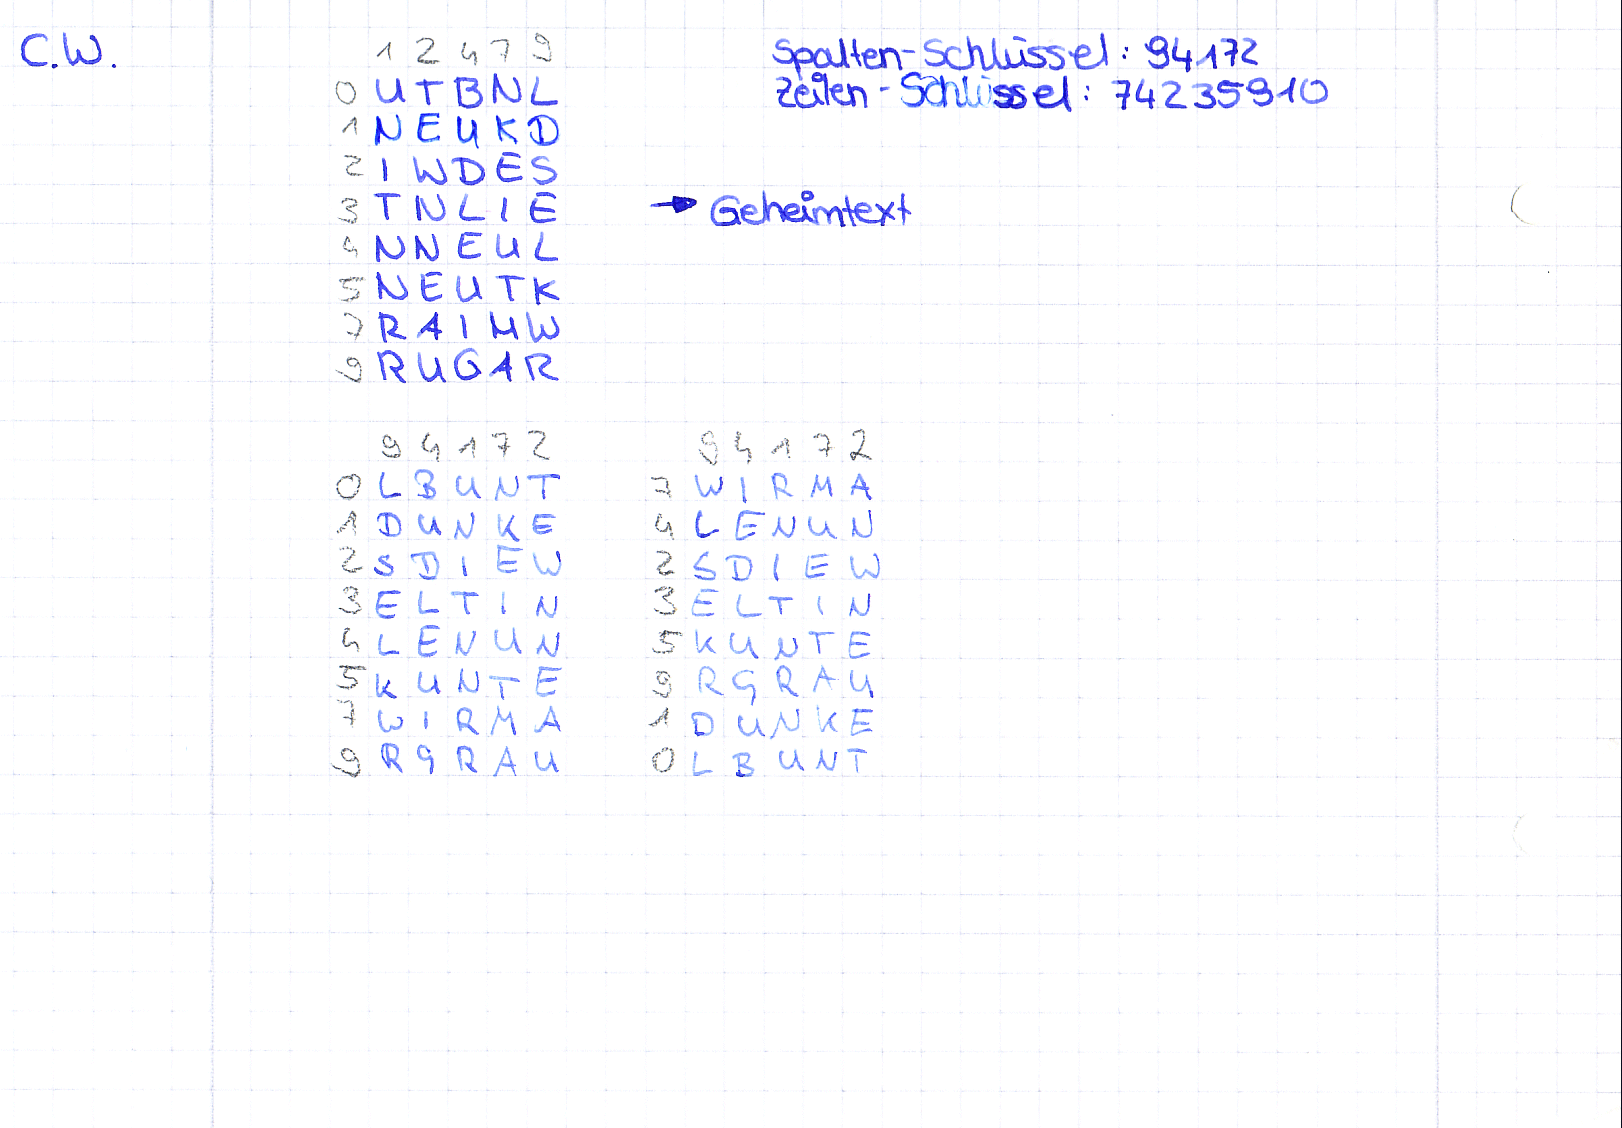 C.W.
1 2 4 7 9
Spalten-Schlüssel: 94172
0 U T B N L
Zeilen-Schlüssel: 74235910
1 N E U K D
2 I W D E S
3 T N L I E → Geheimtext
4 N N E U L
5 N E U T K
7 R A I M W
9 R U G A R
9 4 1 7 2
0 L B U N T
1 D U N K E
2 S D I E W
3 E L T I N
4 L E N U N
5 K U N T E
7 W I R M A
9 R G R A U
9 4 1 7 2
7 W I R M A
4 L E N U N
2 S D I E W
3 E L T I N
5 K U N T E
9 R G R A U
1 D U N K E
0 L B U N T